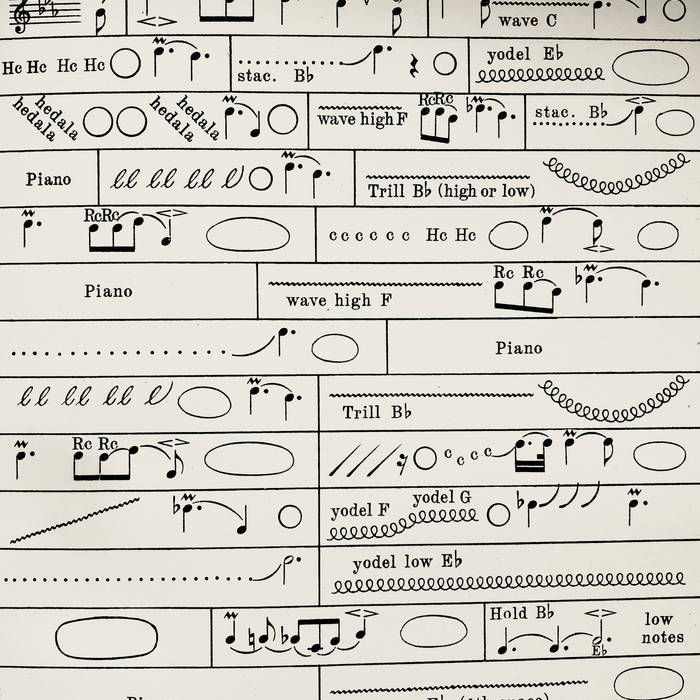 wave C
Hc Hc Hc Hc
stac. B♭
yodel E♭
hedala hedala hedala hedala
wave high F RcRc
stac. B♭
Piano
Trill B♭ (high or low)
RcRc
c c c c c c Hc Hc
Piano
wave high F Rc Rc
Piano
Trill B♭
Rc Rc
c c c c
yodel F yodel G
yodel low E♭
Hold B♭ E♭ low
notes